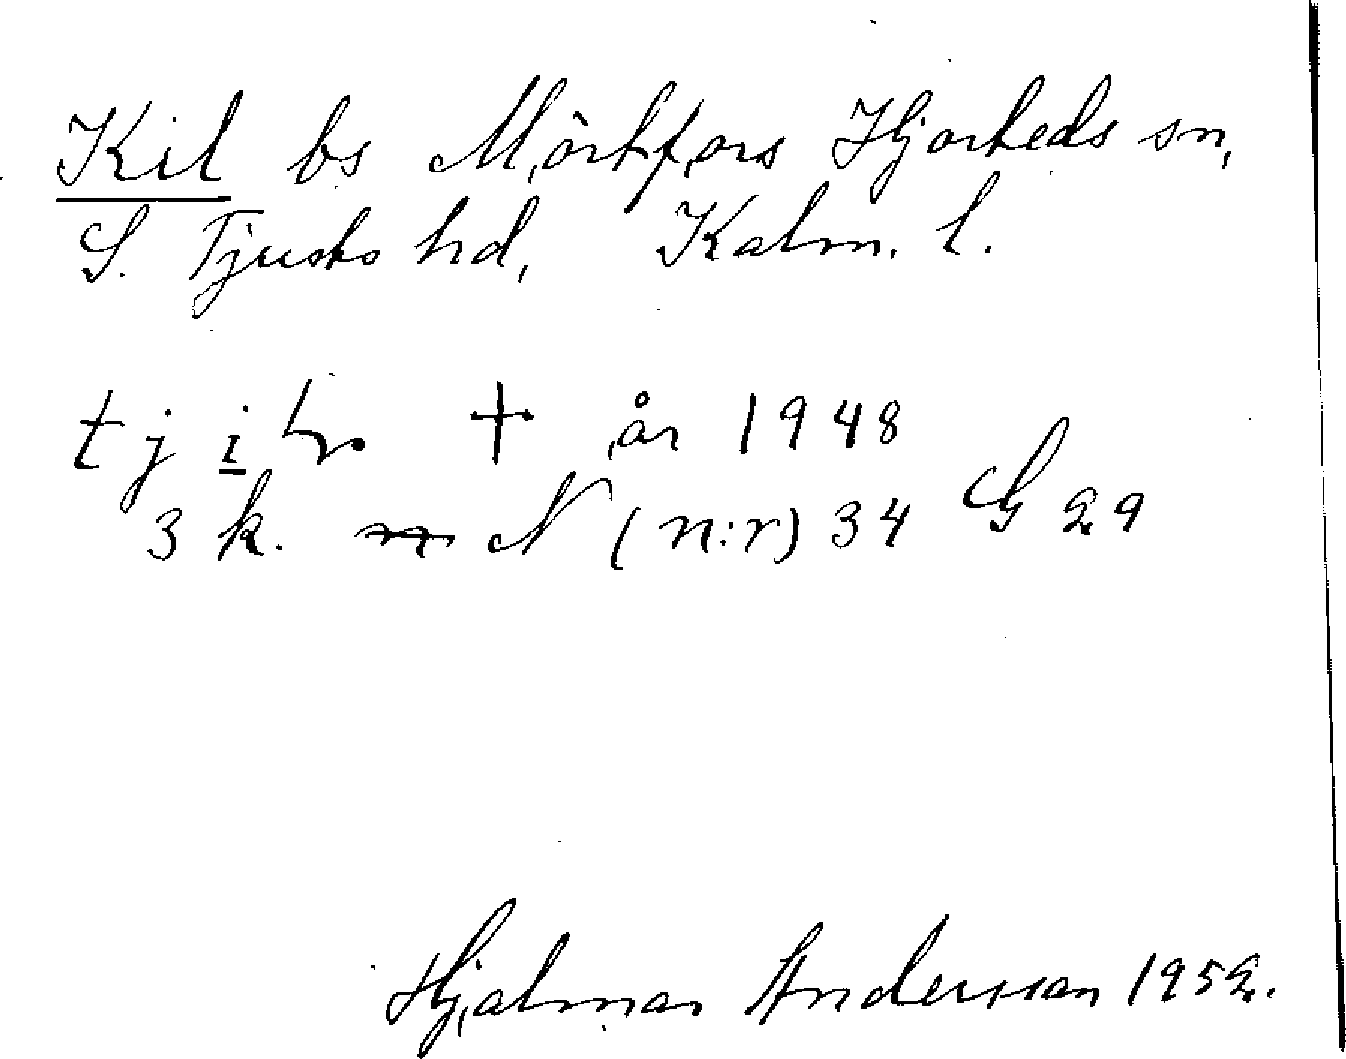 Kil bs Mörtfors Hjorteds sn,
S. Tjusts hd, Kalm. l.
t j i l + år 1948
3 k. N (n:r) 34 G 29
Hjalmar Andersson 1952.